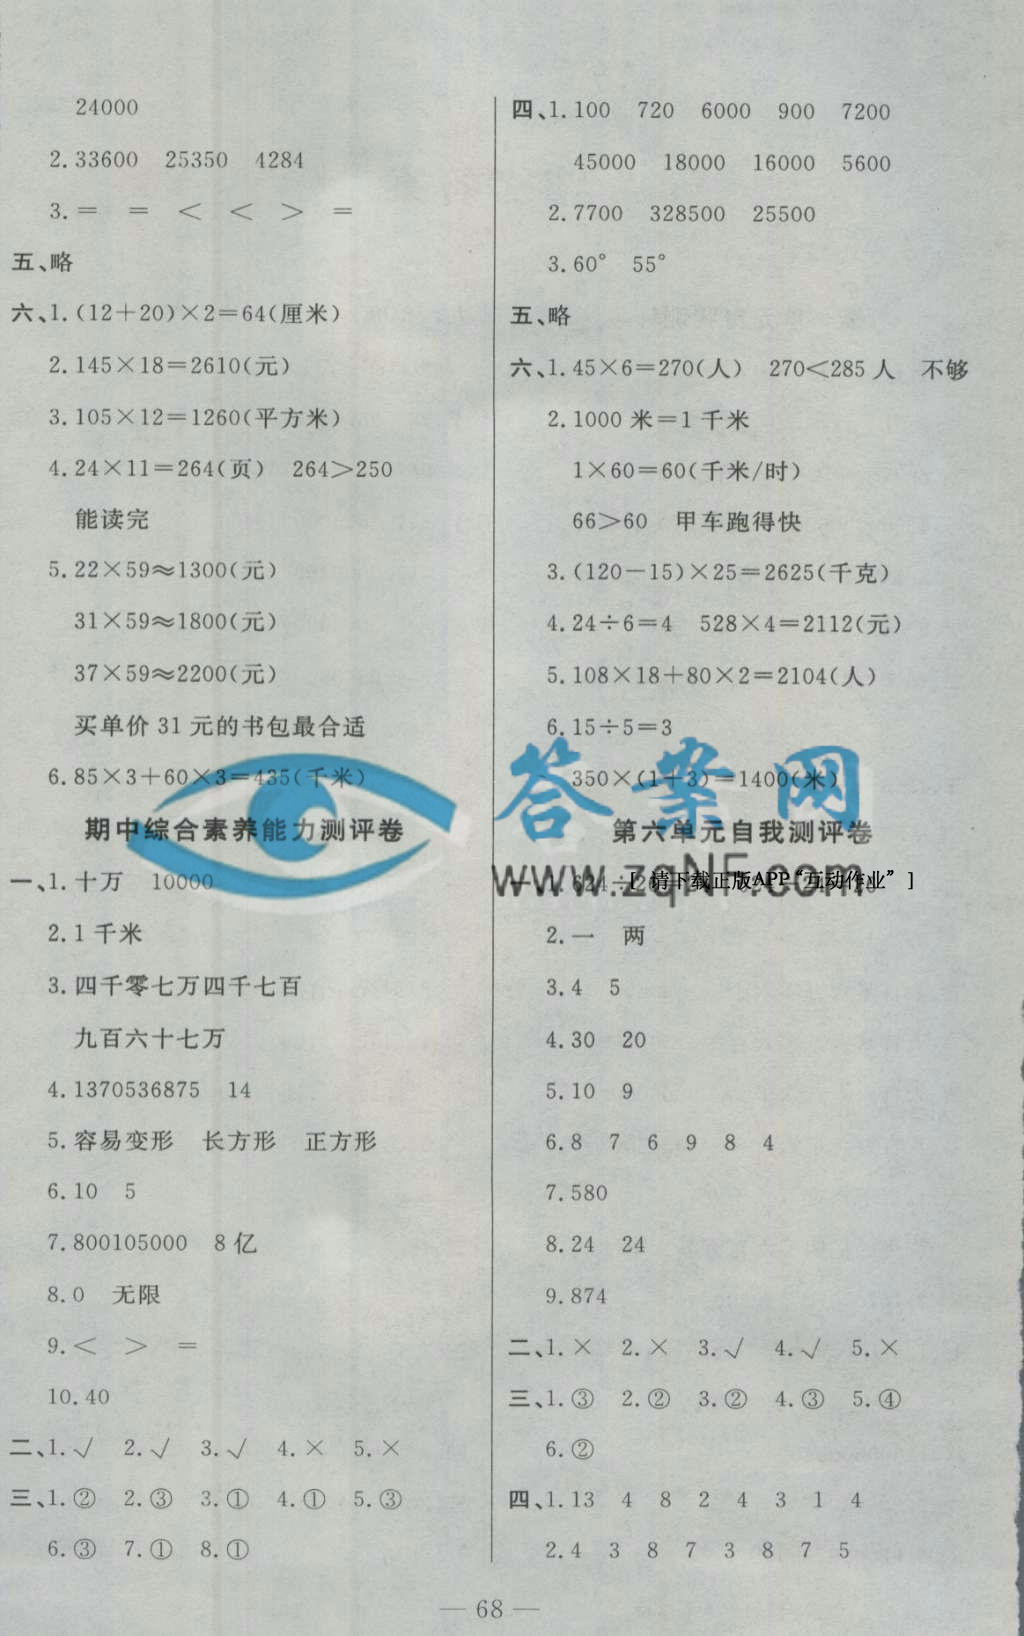 24000
2.33600 25350 4284
3.＝ ＝ ＜ ＜ ＞ ＝
五、略
六、1.(12＋20)×2＝64(厘米)
2.145×18＝2610(元)
3.105×12＝1260(平方米)
4.24×11＝264(页) 264＞250
能读完
5.22×59≈1300(元)
31×59≈1800(元)
37×59≈2200(元)
买单价31元的书包最合适
6.85×3＋60×3＝435(千米)
期中综合素养能力测评卷
一、1.十万 10000
2.1千米
3.四千零七万四千七百
九百六十七万
4.1370536875 14
5.容易变形 长方形 正方形
6.10 5
7.800105000 8亿
8.0 无限
9.＜ ＞ ＝
10.40
二、1.√ 2.√ 3.√ 4.× 5.×
三、1.② 2.③ 3.① 4.① 5.③
6.③ 7.① 8.①
四、1.100 720 6000 900 7200
45000 18000 16000 5600
2.7700 328500 25500
3.60° 55°
五、略
六、1.45×6＝270(人) 270＜285人 不够
2.1000米＝1千米
1×60＝60(千米/时)
66＞60 甲车跑得快
3.(120－15)×25＝2625(千克)
4.24÷6＝4 528×4＝2112(元)
5.108×18＋80×2＝2104(人)
6.15÷5＝3
350×(1＋3)＝1400(米)
答案网
第六单元自我测评卷
www.zqNF.com
[ 请下载正版APP“互动作业” ]
2.一 两
3.4 5
4.30 20
5.10 9
6.8 7 6 9 8 4
7.580
8.24 24
9.874
二、1.× 2.× 3.√ 4.√ 5.×
三、1.③ 2.② 3.② 4.③ 5.④
6.②
四、1.13 4 8 2 4 3 1 4
2.4 3 8 7 3 8 7 5
— 68 —